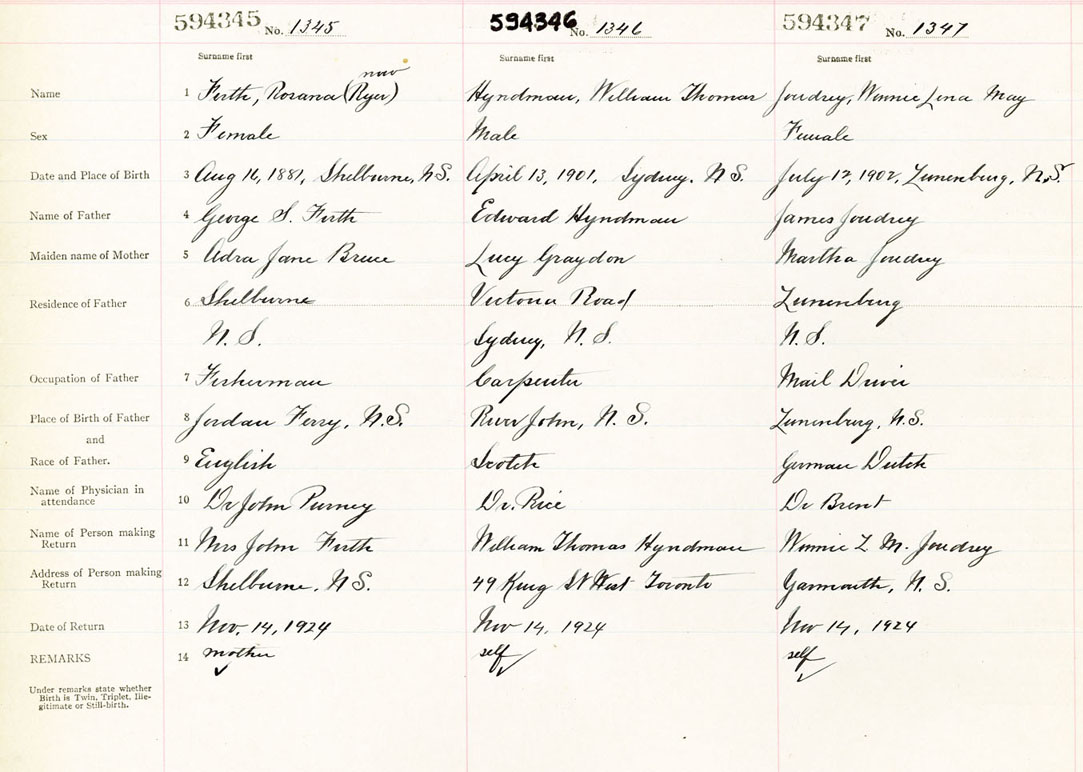 594345 No. 1345 594346 No. 1346 594347 No. 1347
Surname first Surname first Surname first
now
Name 1 Firth, Rosana (Ryer) Hyndman, William Thomas Joudrey, Winnie Lena May
Sex 2 Female Male Female
Date and Place of Birth 3 Aug 16, 1881, Shelburne, N.S. April 13, 1901, Sydney. N S. July 12, 1902, Lunenburg, N.S.
Name of Father 4 George S. Firth Edward Hyndman James Joudrey
Maiden name of Mother 5 Adra Jane Bruce Lucy Graydon Martha Joudrey
Residence of Father 6 Shelburne Victoria Road Lunenburg
N. S. Sydney, N. S. N. S.
Occupation of Father 7 Fisherman Carpenter Mail Driver
Place of Birth of Father 8 Jordan Ferry, N.S. River John, N. S. Lunenburg, N.S.
and
Race of Father. 9 English Scotch German Dutch
Name of Physician in
attendance 10 Dr John Purney Dr. Rice Dr Brent
Name of Person making
Return 11 Mrs John Firth William Thomas Hyndman Winnie L. M. Joudrey
Address of Person making
Return 12 Shelburne, N S. 49 King St West Toronto Yarmouth, N. S.
Date of Return 13 Nov. 14, 1924 Nov 14, 1924 Nov 14, 1924
REMARKS 14 mother self self
Under remarks state whether
Birth is Twin, Triplet, Ille-
gitimate or Still-birth.